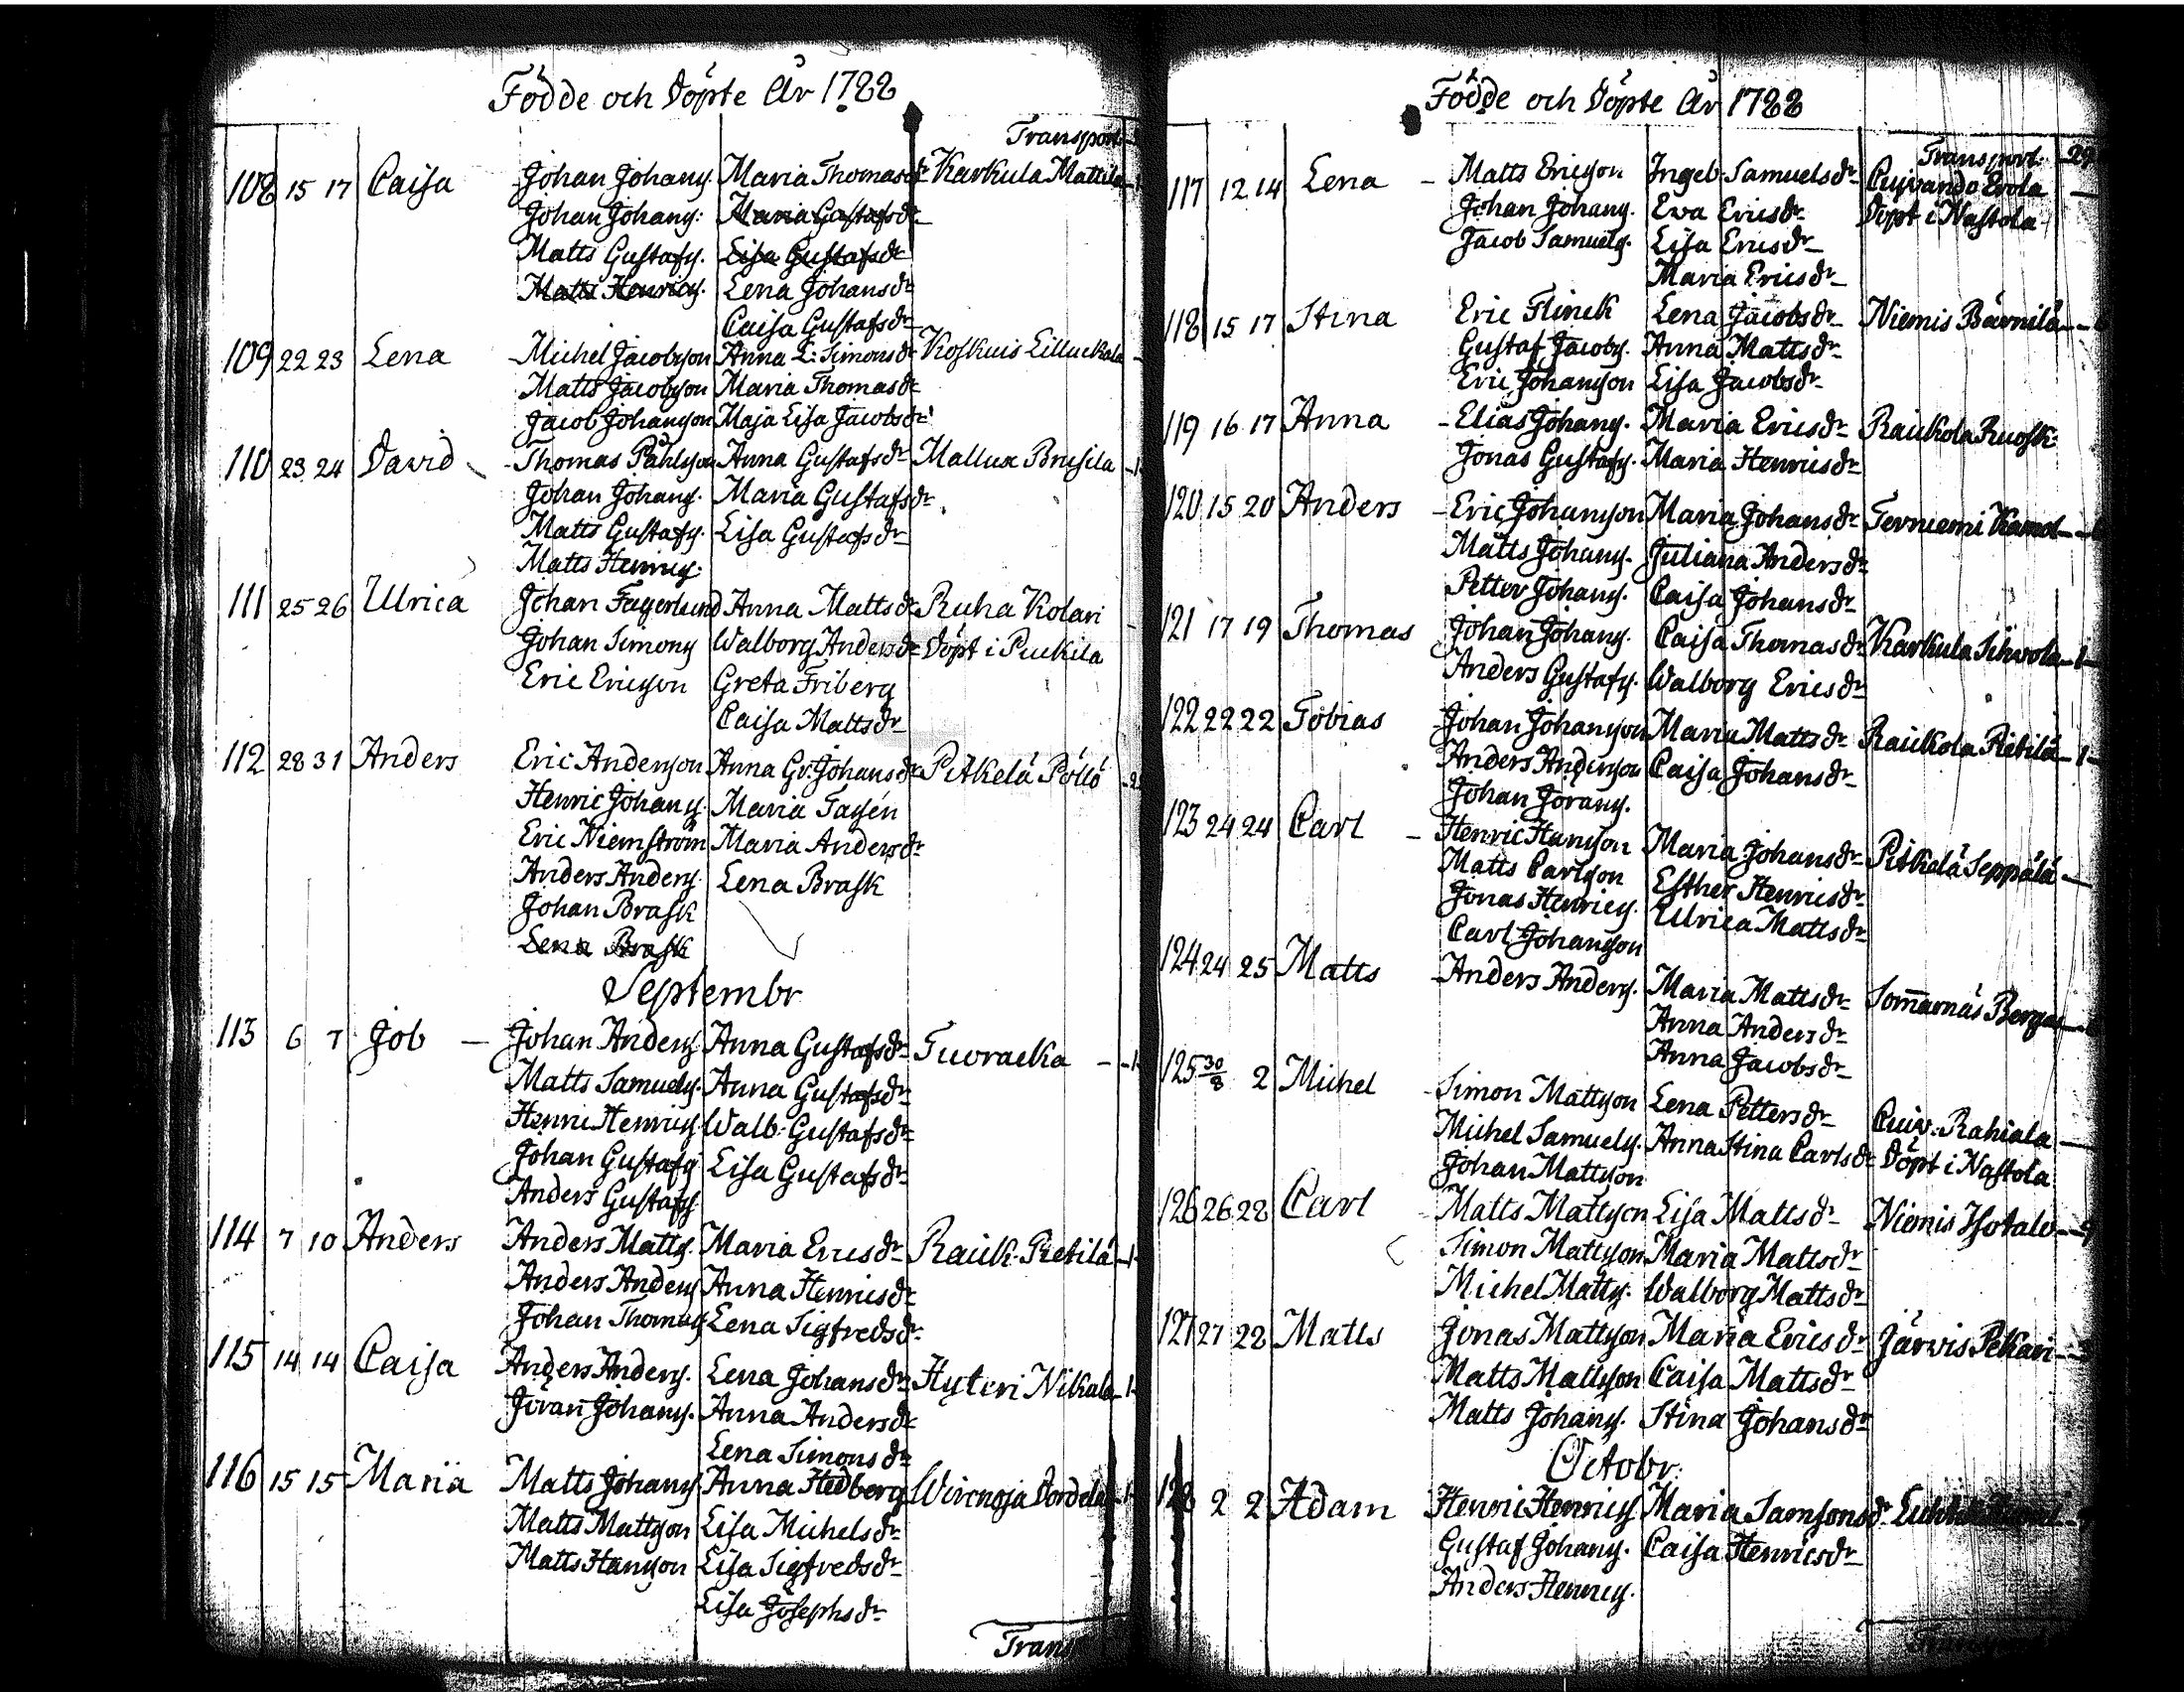 Födde och Döpte År 1788
Transport
108 15 17 Caisa Johan Johans. Maria Thomasdr Karkula Mattila
Johan Johans: Maria Gustafsdr
Matts Gustafs. Lisa Gustafsdr
Matts Henrics. Lena Johansdr
Caisa Gustafsdr
109 22 23 Lena Michel Jacobsson Anna L: Simonsdr Koskuis Lilluckala
Matts Jacobsson Maria Thomasdr
Jacob Johansson Maja Lisa Jacobsdr
110 23 24 David Thomas Påhlsson Anna Gustafsdr Mallux Brusila
Johan Johans. Maria Gustafsdr
Matts Gustafs. Lisa Gustafsdr
Matts Henrics.
111 25 26 Ulrica Johan Fagerlund Anna Mattsdr Ruha Kolari
Johan Simons Walborg Andersdr Döpt i Puckila
Eric Ericsson Greta Friberg
Caisa Mattsdr
112 28 31 Anders Eric Andersson Anna Gr: Johansdr Pitkelä Pöllö
Henric Johans. Maria Tasén
Eric Niemström Maria Andersdr
Anders Anders. Lena Brask
Johan Brask
Lena Brask
Septembr
113 6 7 Job Johan Anders Anna Gustafsdr Tuoracka
Matts Samuels. Anna Gustafsdr
Henric Henrics Walb: Gustafsdr
Johan Gustafs Lisa Gustafsdr
Anders Gustafs
114 7 10 Anders Anders Matts. Maria Ericsdr Rauk. Retilä
Anders Anders Anna Henricsdr
Johan Thomas Lena Sigfredsdr
115 14 14 Caisa Anders Anders. Lena Johansdr Hyteri Nikula
Jöran Johans. Anna Andersdr
Lena Simonsdr
116 15 15 Maria Matts Johans Anna Hedberg Wirenoja Dordela
Matts Mattsson Lisa Michelsdr
Matts Hansson Lisa Sigfredsdr
Lisa Josephsdr
Födde och Döpte År 1788
Transport
117 12 14 Lena Matts Ericsson Ingeb. Samuelsdr Cuivando Erola
Johan Johans. Ewa Ericsdr Döpt i Nastola
Jacob Samuels. Lisa Ericsdr
Maria Ericsdr
118 15 17 Stina Eric Flinck Lena Jacobsdr Niemis Bärnilä
Gustaf Jacobs. Anna Mattsdr
Eric Johansson Lisa Jacobsdr
119 16 17 Anna Elias Johans. Maria Ericsdr Raukola Ruosk.
Jonas Gustafs. Maria Henricsdr
120 15 20 Anders Eric Johansson Maria Johansdr Terniemi
Matts Johans. Juliana Andersdr
Petter Johans. Caisa Johansdr
121 17 19 Thomas Johan Johans. Caisa Thomasdr Karkula Sihvola 1
Anders Gustafs. Walborg Ericsdr
122 22 22 Tobias Johan Johansson Maria Mattsdr Raukola Retilä 1
Anders Andersson Caisa Johansdr
Johan Jörans.
123 24 24 Carl Henric Hansson Maria Johansdr Pitkelä Seppälä
Matts Carlsson Esther Henricsdr
Jonas Henrics. Ulrica Mattsdr
Carl Johansson
124 24 25 Matts Anders Anders. Maria Mattsdr Som̄arnäs
Anna Andersdr
Anna Jacobsdr
125 30/8 2 Michel Simon Mattsson Lena Pettersdr Cuiv. Rahiala
Michel Samuels. Anna Stina Carlsdr Döpt i Nastola
Johan Mattsson
126 26 28 Carl Matts Mattsson Lisa Mattsdr Niemis Isotalo
Simon Mattsson Maria Mattsdr
Michel Matts. Walborg Mattsdr
127 27 28 Matts Jonas Mattsson Maria Ericsdr Järvis Pekari
Matts Mattsson Caisa Mattsdr
Matts Johans. Stina Johansdr
Octobr.
128 2 2 Adam Henric Henrics Maria Samsonsdr
Gustaf Johans. Caisa Henricsdr
Anders Henrics.